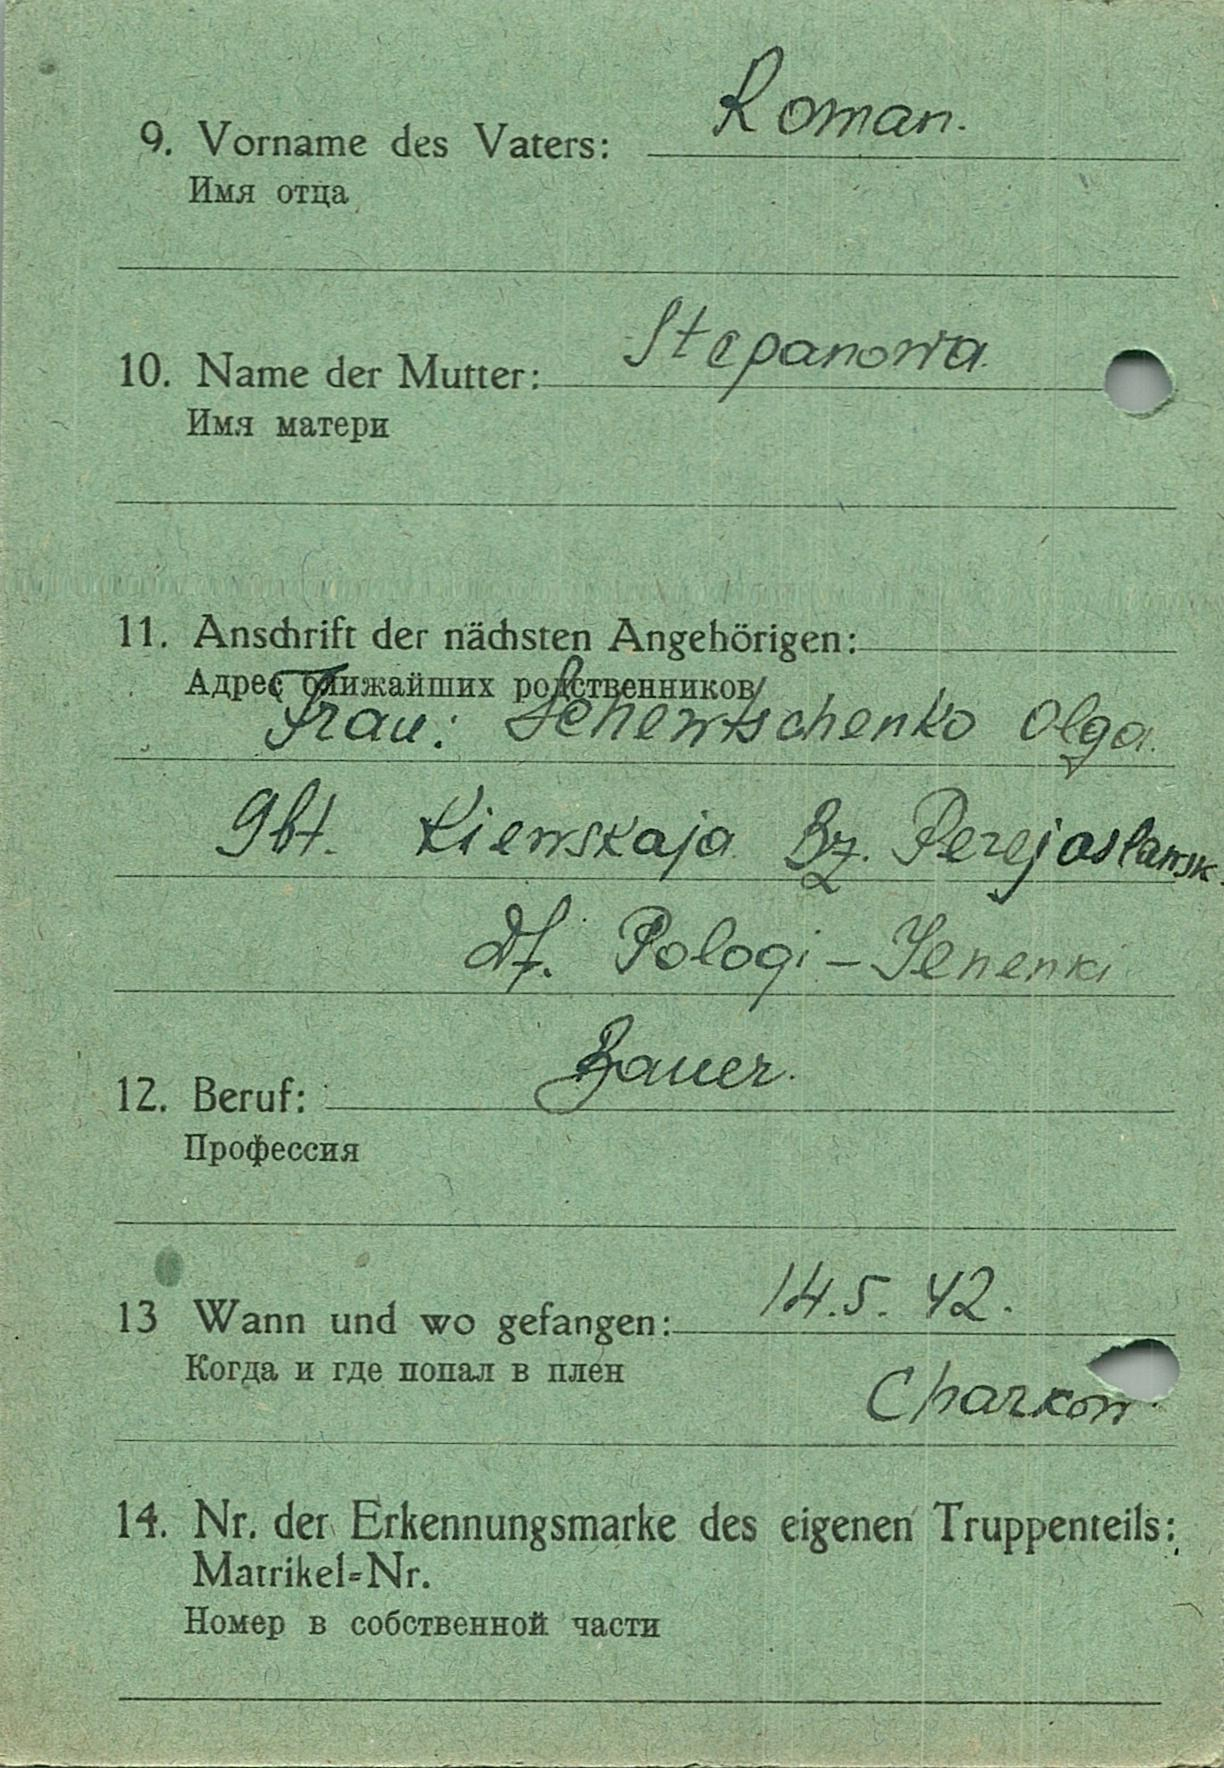 Roman.
9. Vorname des Vaters:
Имя отца
Stepanowa.
10. Name der Mutter:
Имя матери
11. Anschrift der nächsten Angehörigen:
Адрес ближайших родственников
Frau: Schewtschenko Olga.
Gbt. Kiewskaja Bz. Perejaslawsk.
Df. Pologi-
Bauer.
12. Beruf:
Профессия
14.5.42.
13 Wann und wo gefangen:
Когда и где попал в плен
Charkow.
14. Nr. der Erkennungsmarke des eigenen Truppenteils:
Matrikel-Nr.
Номер в собственной части